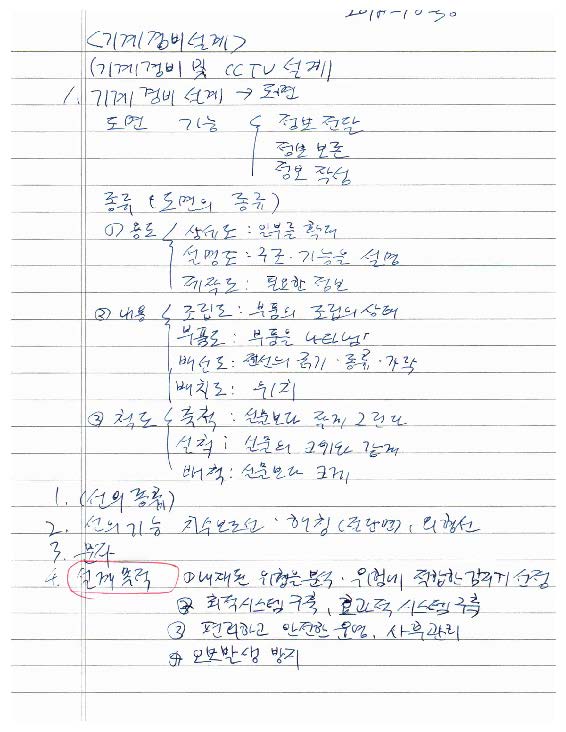 <기계경비설계>
(기계경비 및 CCTV 설계)
1. 기계경비 설계 → 도면
도면 기능 < 정보 전달
정보 보존
정보 작성
종류 (도면의 종류)
① 용도 / 상세도 : 일부를 확대
설명도 : 구조·기능을 설명
제작도 : 필요한 정보
② 내용 < 조립도 : 부품의 조립의 상태
부품도 : 부품을 나타냄
배선도 : 전선의 굵기·종류·가닥
배치도 : 위치
③ 척도 < 축척 : 실물보다 작게 그린다
실척 : 실물의 크기와 같게
배척 : 실물보다 크게
1. (선의 종류)
2. 선의 기능 치수보조선·해칭(절단면), 외형선
3. 문자
4. 설계목적 ① 내재된 위험을 분석·위험에 적합한 감지기 선정
② 최적시스템 구축, 효과적 시스템 구축
③ 편리하고 안전한 운영, 사후관리
④ 오보발생 방지